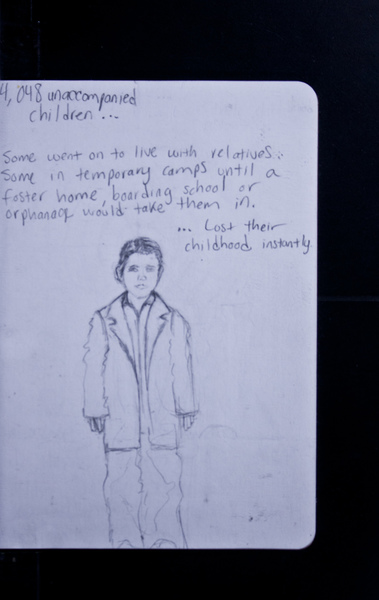 4,048 unaccompanied
children ...
Some went on to live with relatives.
Some in temporary camps until a
foster home, boarding school or
orphanage would take them in.
... Lost their
childhood instantly.